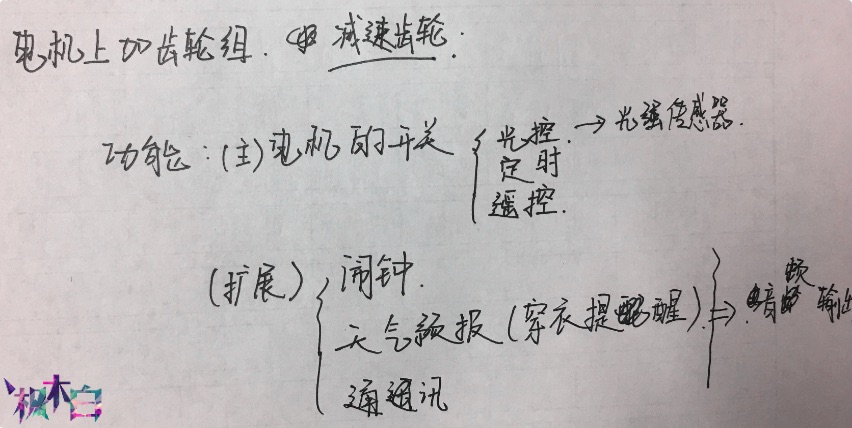 电机上加齿轮组. 减速齿轮.
功能:(主)电机的开关 { 光控. → 光强传感器.
定时
遥控.
(扩展) { 闹钟.
天气预报(穿衣提醒). } ⇒ 音频输出
通讯
积木白